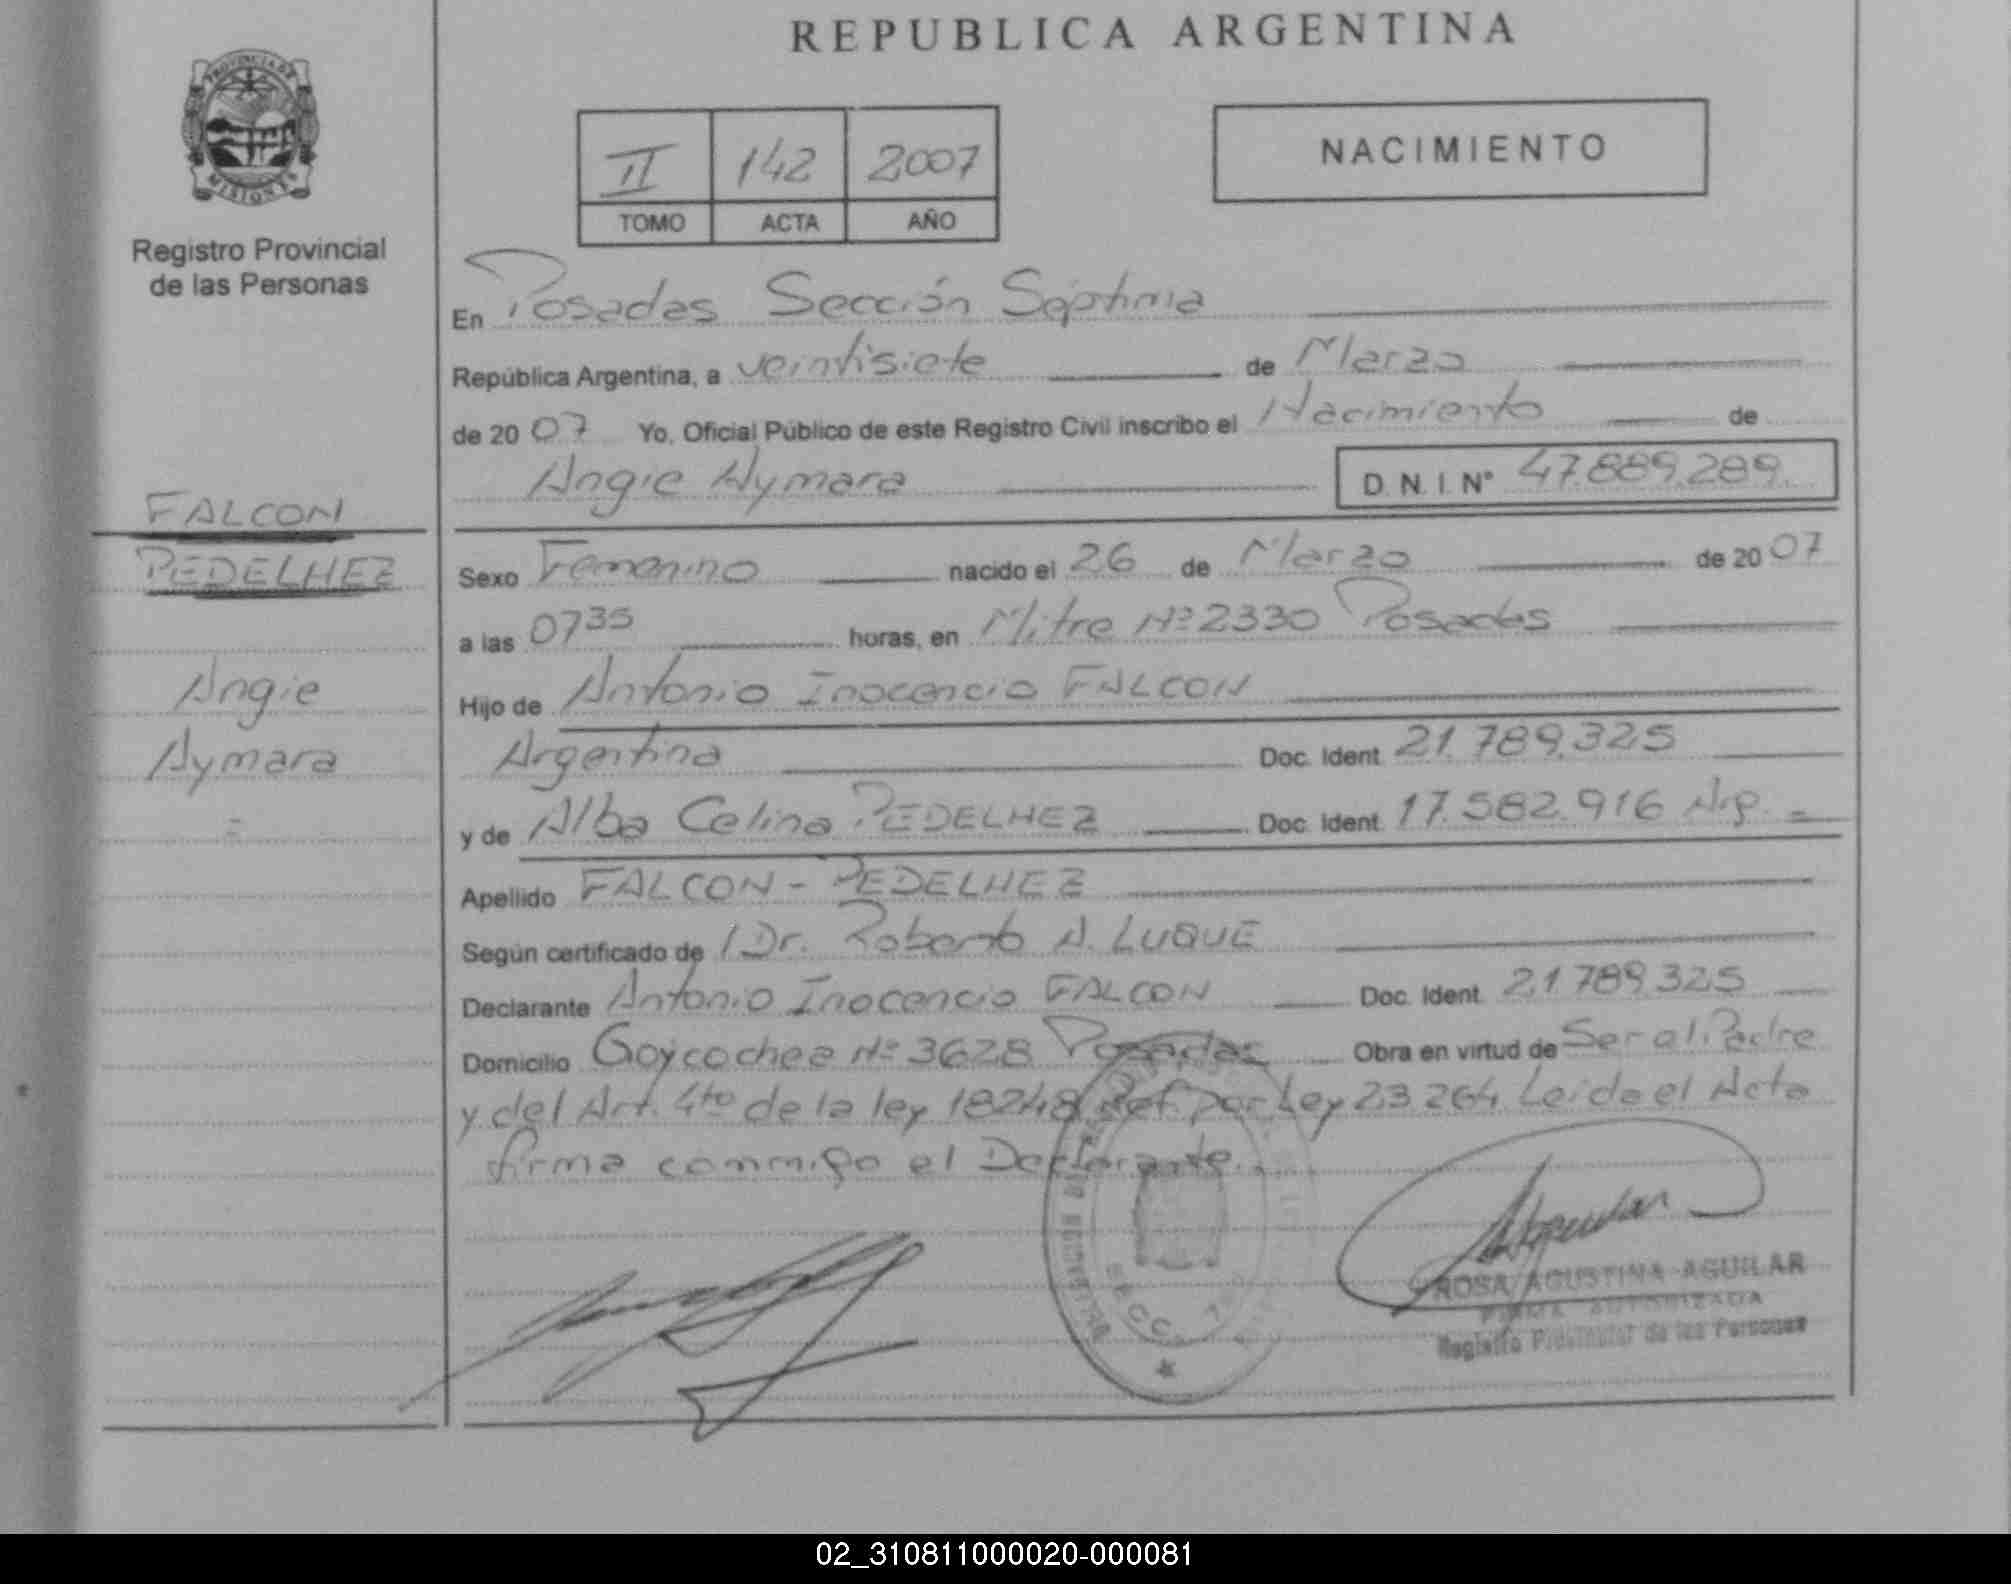 REPUBLICA ARGENTINA
PROVINCIA DE
MISIONES
Registro Provincial
de las Personas
II 142 2007
TOMO ACTA AÑO
NACIMIENTO
En Posadas Sección Séptima
República Argentina, a veintisiete de Marzo
de 2007 Yo, Oficial Público de este Registro Civil inscribo el Nacimiento de
Angie Aymara D. N. I. N° 47.889.289
FALCON
PEDELHEZ
Angie
Aymara
Sexo Femenino nacido el 26 de Marzo de 2007
a las 0735 horas, en Mitre Nº 2330 Posadas
Hijo de Antonio Inocencio FALCON
Argentina Doc. Ident. 21.789.325
y de Alba Celina PEDELHEZ Doc. Ident. 17.582.916 Arg.
Apellido FALCON - PEDELHEZ
Según certificado de Dr. Roberto A. LUQUE
Declarante Antonio Inocencio FALCON Doc. Ident. 21789325
Domicilio Goycochea Nº 3628 Posadas Obra en virtud de Ser el Padre
y del Art. 4to de la ley 18248 Ref. por Ley 23264 Leída el Acta
firma conmigo el Declarante.
SECC. 7
ROSA AGUSTINA AGUILAR
FIRMA AUTORIZADA
Registro Provincial de las Personas
02_310811000020-000081